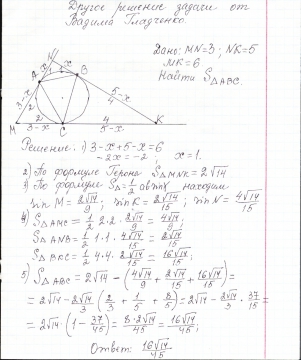 Другое решение задачи от
Вадима Гладченко.
Дано: MN=3; NK=5
MK=6
Найти S△ABC.
N
A
B
x
3-x
2
5-x
4
M
3-x
C
5-x
K
Решение: 1) 3-x+5-x=6
-2x=-2; x=1.
2) По формуле Герона S△MNK=2√14
3) По формуле S△=1/2 absinγ находим
sin M=2√14/9; sin K=2√14/15; sin N=4√14/15
4) S△AMC=1/2·2·2·2√14/9=4√14/9;
S△ANB=1/2·1·1·4√14/15=2√14/15;
S△BKC=1/2·4·4·2√14/15=16√14/15;
5) S△ABC=2√14-(4√14/9+2√14/15+16√14/15)=
=2√14-2√14/3(2/3+1/5+8/5)=2√14-2√14/3·37/15=
=2√14·(1-37/45)=8·2√14/45=16√14/45;
Ответ: 16√14/45